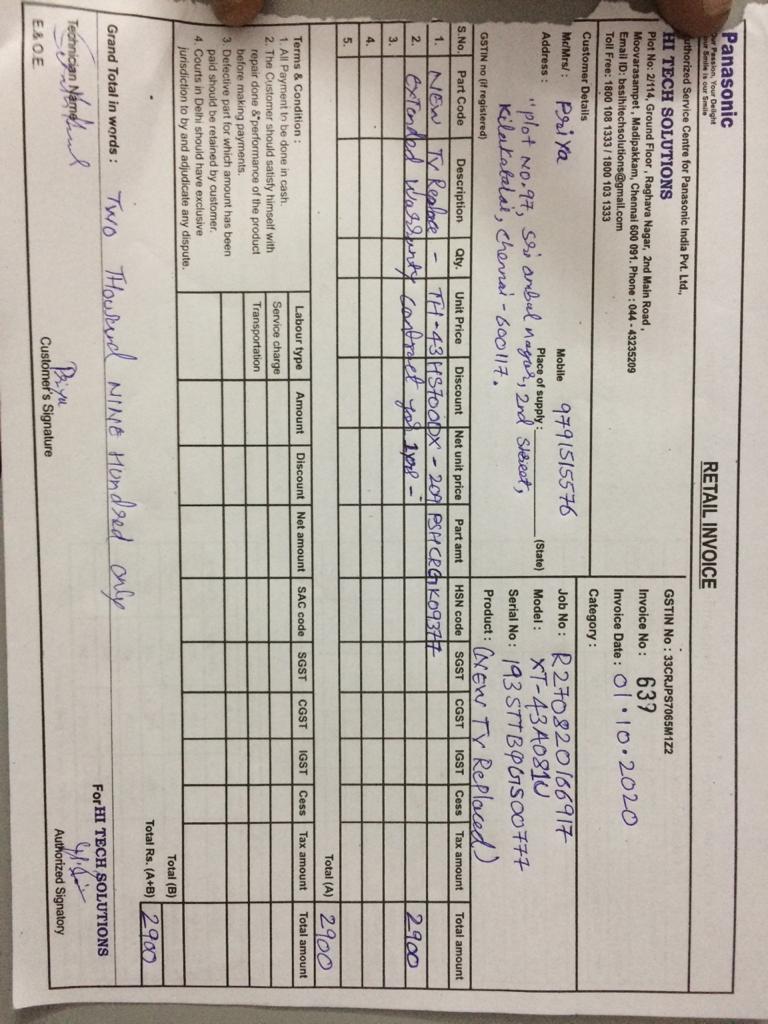 Panasonic
Our Passion, Your Delight
Your Smile is our Smile
RETAIL INVOICE
Authorized Service Centre for Panasonic India Pvt. Ltd.,
HI TECH SOLUTIONS
Plot No: 2/114, Ground Floor, Raghava Nagar, 2nd Main Road,
Moovarasampet, Madipakkam, Chennai 600 091. Phone : 044 - 43235209
Email ID: bsslhitechsolutions@gmail.com
Toll Free: 1800 108 1333 / 1800 103 1333
GSTIN No : 33CRJPS7065M1Z2
Invoice No : 639
Invoice Date : 01.10.2020
Category :
Customer Details
Mr/Mrs/ : Priya
Mobile 9791515576
Address : "Plot No.97, Sri ambal nagar, 2nd street,
Place of supply : (State)
Kilukatalai, Chennai - 600117.
GSTIN no (if registered)
Job No : R270820166917
Model : XT-43A081N
Serial No :
Product : (NEW TV Replaced)
S.No. Part Code Description Qty. Unit Price Discount Net unit price Part amt HSN code SGST CGST IGST Cess Tax amount Total amount
1. NEW TV Replace - TH-43HS700DX -
2. Extended Warranty contract for 1yr - 2900
3.
4.
5.
Total (A) 2900
Terms & Condition :
1. All Payment to be done in cash.
2. The Customer should satisfy himself with
repair done &*performance of the product
before making payments.
3. Defective part for which amount has been
paid should be retained by customer.
4. Courts in Delhi should have exclusive
jurisdiction to by and adjudicate any dispute.
Labour type Amount Discount Net amount SAC code SGST CGST IGST Cess Tax amount Total amount
Service charge
Transportation
Total (B)
Total Rs. (A+B) 2900
Grand Total in words : Two Thousand NINE Hundred only
For HI TECH SOLUTIONS
Technician Name
Priya
Customer's Signature
Authorized Signatory
E.& O.E.